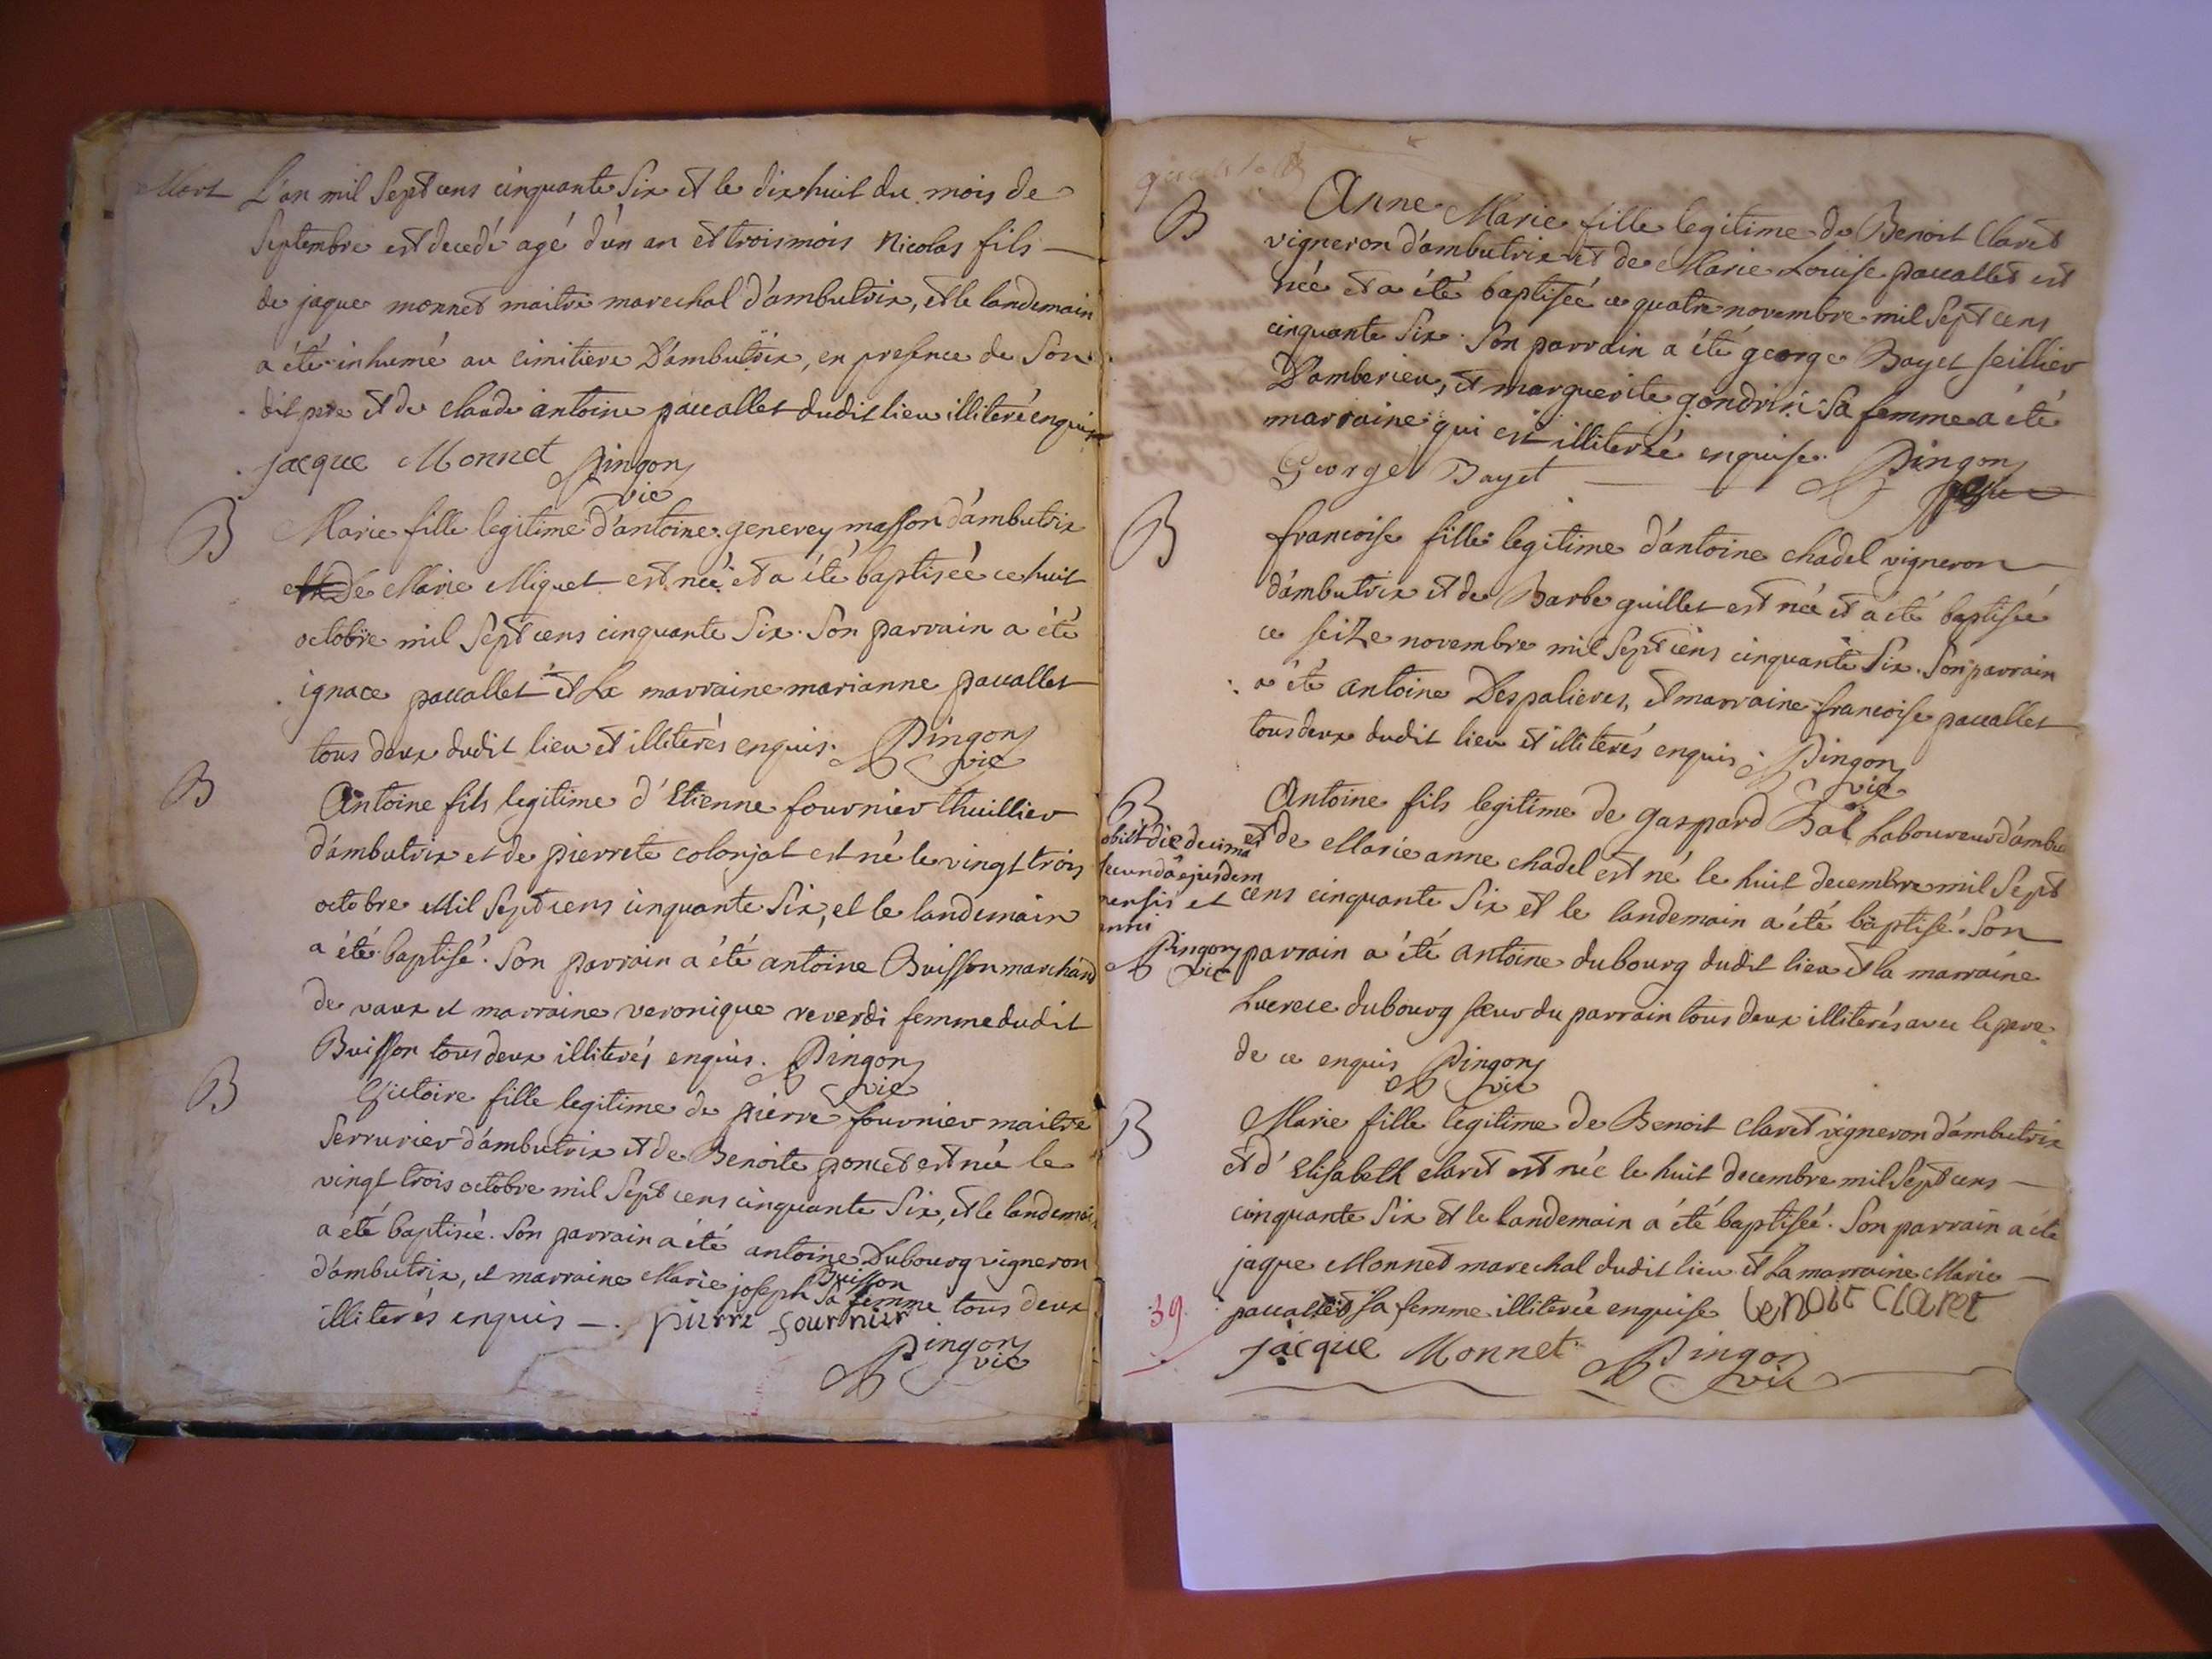 Mort L'an mil Sept cens cinquante Six et le dix huit du mois de
Septembre est decedé agé d'un an et trois mois Nicolas fils
de jaque monnet maitre marechal d'ambutrix, et le landemain
a été inhumé au cimitiere D'ambutrix, en presence de Son
dit pere et de claude antoine pauallet dudit lieu illiteré enquis
jacque Monnet Pingon
vic
B Marie fille legitime d'antoine genevey masson d'ambutrix
et De Marie Miguet est née et a été baptisée ce huit
octobre mil Sept cens cinquante Six. Son parrain a été
ignace pauallet et La marraine marianne pauallet
tous deux dudit lieu et illiterés enquis. Pingon
vic
B Antoine fils legitime d'Etienne fournier thuillier
d'ambutrix et de pierrete colonjat est né le vingt trois
octobre Mil Sept cens cinquante Six, et le landemain
a été baptisé. Son parrain a été antoine Buisson marchand
de vaux et marraine veronique reverdi femme dudit
Buisson tous deux illiterés enquis. Pingon
vic
B Victoire fille legitime de pierre fournier maitre
Serrurier d'ambutrix et de Benoite poncet est née le
vingt trois octobre mil Sept cens cinquante Six, et le landemain
a été baptisée. Son parrain a été antoine Dubourg vigneron
d'ambutrix, et marraine Marie joseph Buisson Sa femme tous deux
illiterés enquis —. pierre fournier
Pingon
vic
B Anne Marie fille legitime de Benoit Claret
vigneron d'ambutrix et de Marie Louise pauallet est
née et a été baptisée ce quatre novembre mil Sept cens
cinquante Six. Son parrain a été george Bayet seillier
D'amberieu, et marguerite gondrin Sa femme a été
marraine qui est illiterée enquise. Pingon
George Bayet
B francoise fille legitime d'antoine chadel vigneron
d'ambutrix et de Barbe guillet est née et a été baptisée
ce seize novembre mil Sept cens cinquante Six. Son parrain
a été antoine Despalieres, et marraine francoise pauallet
tous deux dudit lieu et illiterés enquis. Pingon
vic
B Antoine fils legitime de gaspard Bal Laboureur d'ambu
et de Marie anne chadel est né le huit decembre mil Sept
cens cinquante Six et le landemain a été baptisé. Son
parrain a été antoine dubourg dudit lieu et la marraine
Lucrece dubourg sœur du parrain tous deux illiterés avec le pere
de ce enquis Pingon
vic
obiit die decima
secunda ejusdem
mensis et
anni
Pingon
vic
B Marie fille legitime de Benoit claret vigneron d'ambutrix
et d'Elisabeth claret est née le huit decembre mil Sept cens
cinquante Six et le Landemain a été baptisée. Son parrain a été
jaque Monnet marechal dudit lieu et La marraine Marie
pauallet sa femme illiterée enquise benoit Claret
39.
jacque Monnet Pingon
vic